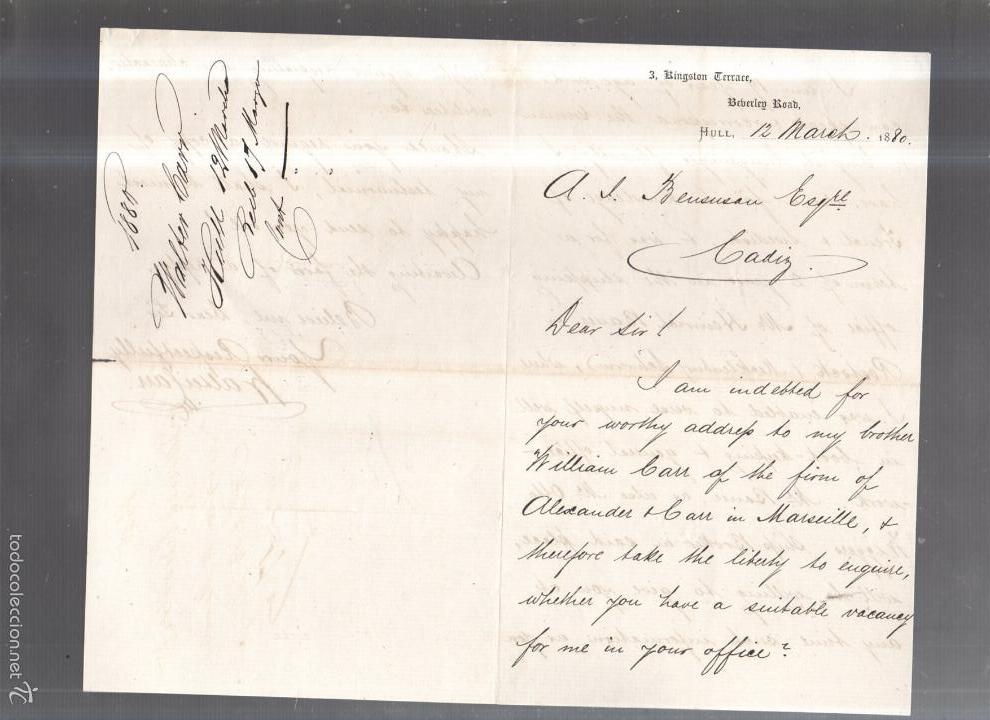 3, Kingston Terrace,
Beverley Road,
Hull, 12 March. 1880.
A. J. Bensusan Esqre
Cadiz.
Dear Sir!
I am indebted for
your worthy address to my brother
William Carr of the firm of
Alexander & Carr in Marseille, &
therefore take the liberty to enquire,
whether you have a suitable vacancy
for me in your office?
1880
Walter Carr
Hull 12 March
17 Março
todocoleccion.net